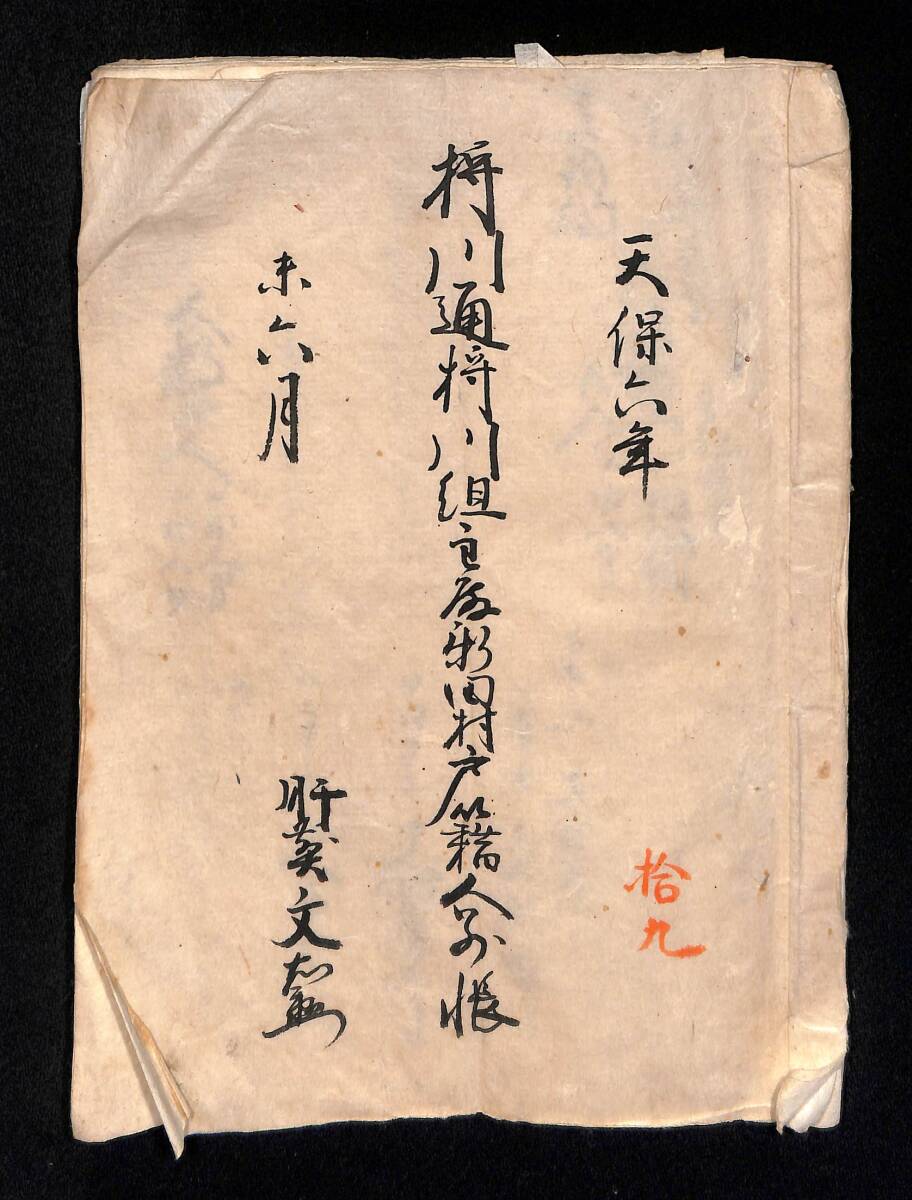 天保六年
拾九
狩川通狩川組主殿新田村戸籍人別帳
未六月
肝煎文右衛門